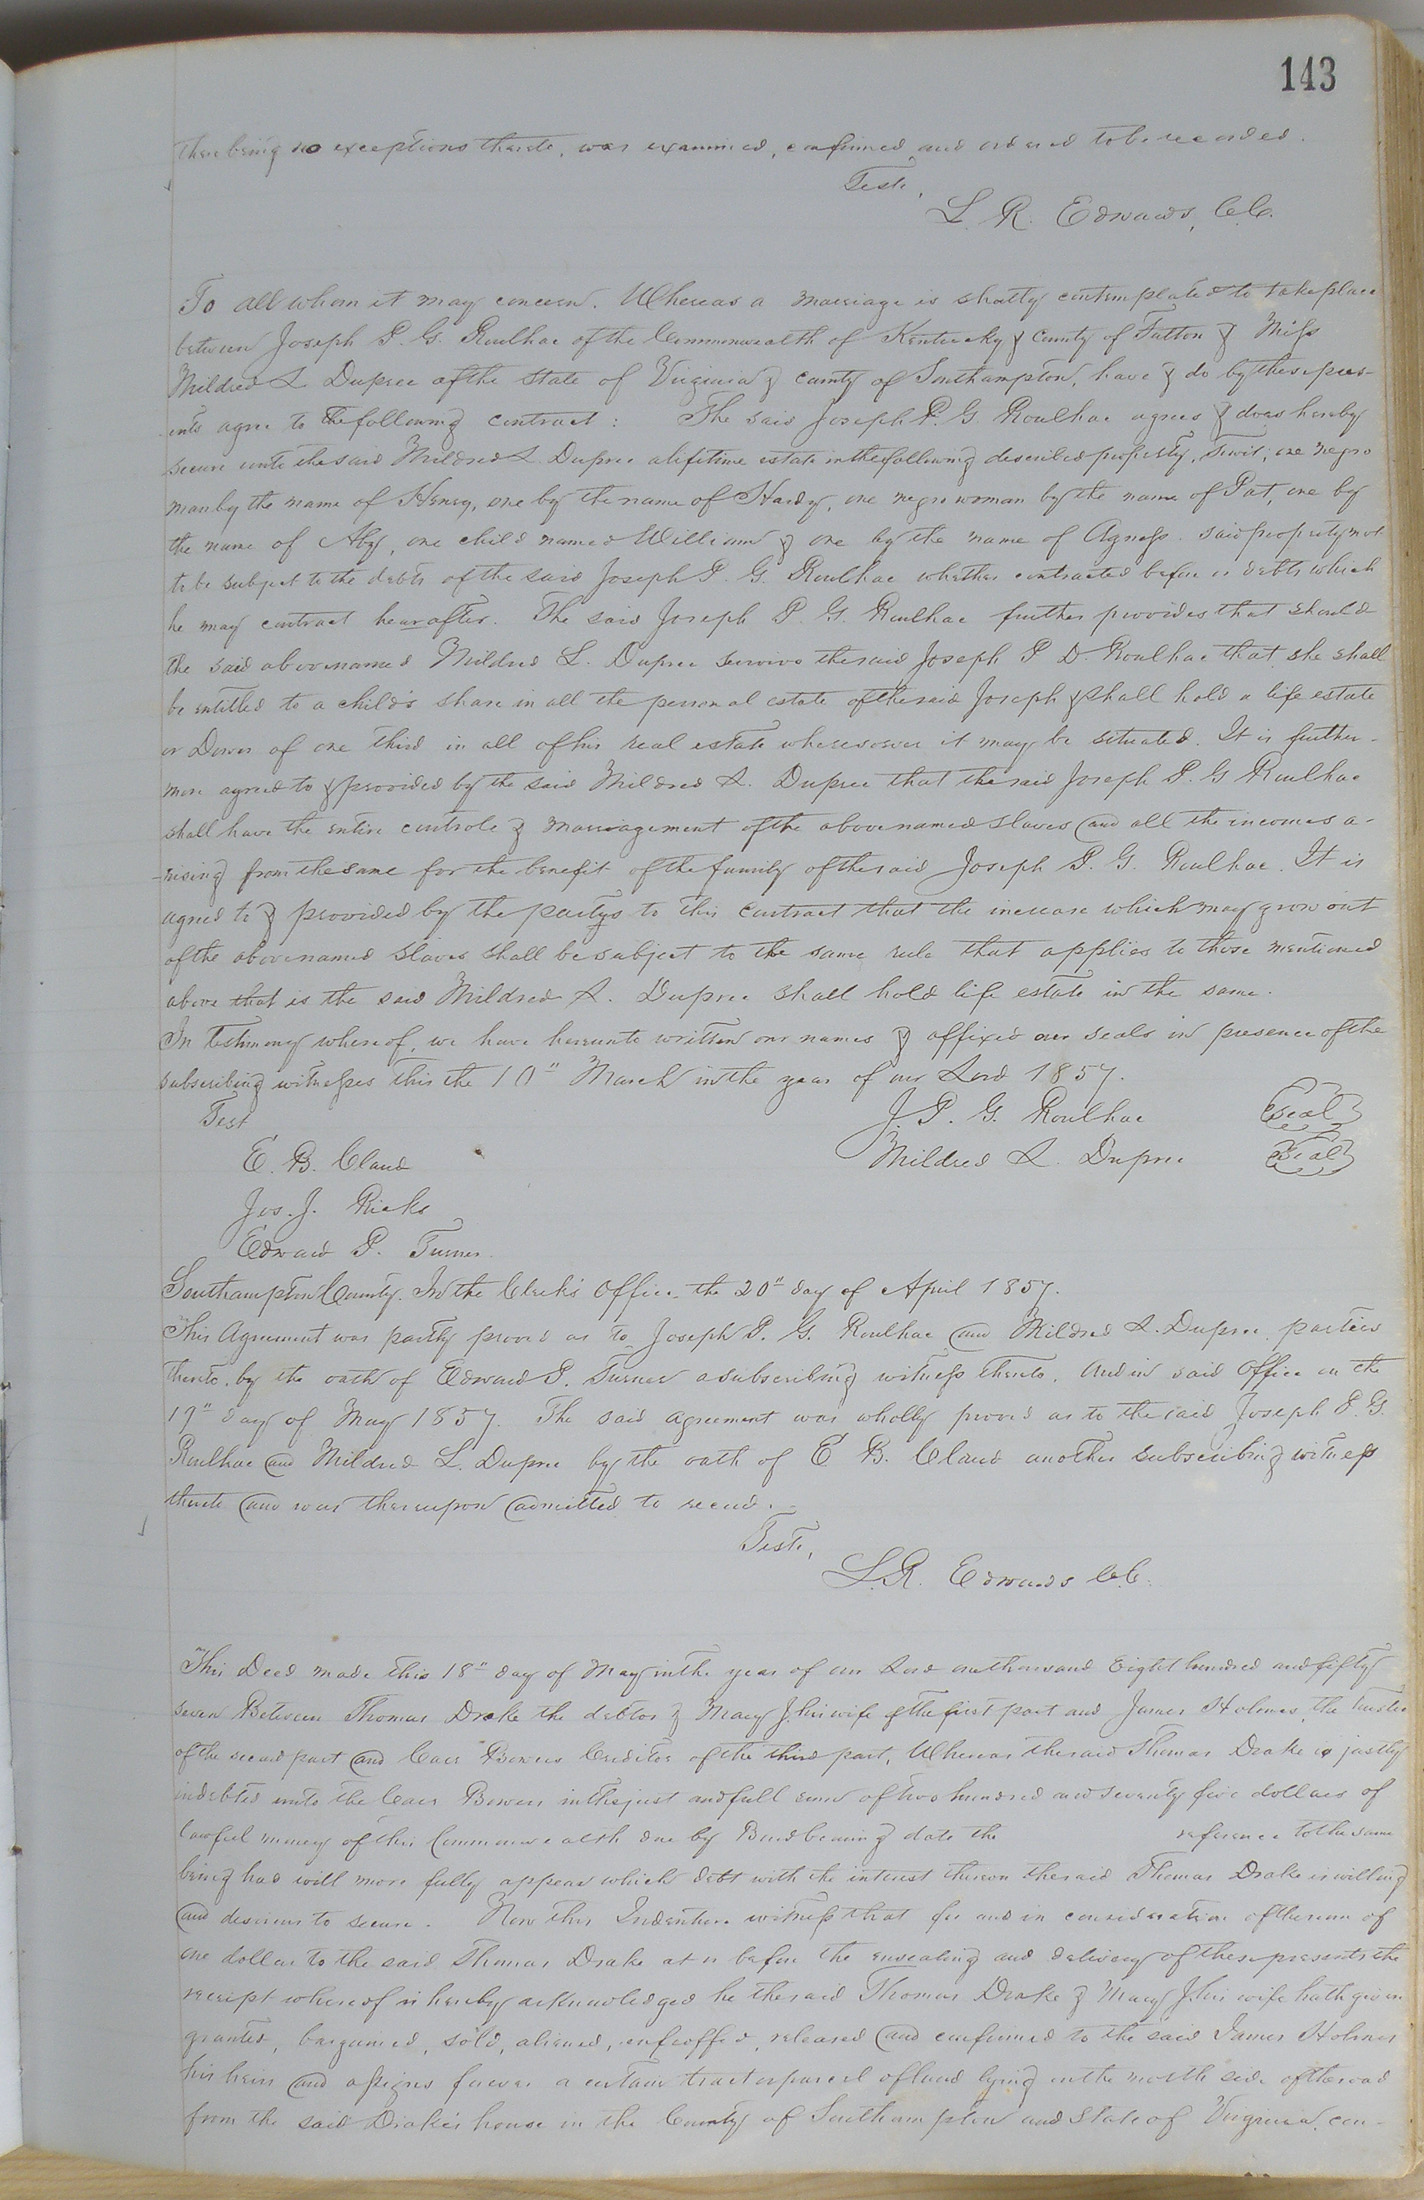 143
there being no exceptions thereto, was examined, confirmed and ordered to be recorded.
Teste,
L. R. Edwards, C.C.
To all whom it may concern. Whereas a marriage is shortly contemplated to take place
between Joseph P. G. Roulhac of the Commonwealth of Kentucky & County of Fulton & Miss
Mildred L Dupree of the State of Virginia & county of Southampton, have & do by these pres-
ents agree to the following contract: The said Joseph P. G Roulhac agrees & does hereby
secure unto the said Mildred L Dupree a lifetime estate in the following described property, Towit; one negro
man by the name of Henry, one by the name of Hardy, one negro woman by the name of Pat, one by
the name of Aby, one child named William & one by the name of Agness. said property not
to be subject to the debts of the said Joseph P. G. Roulhac whether contracted before or debts which
he may contract hearafter. The said Joseph P. G. Roulhac further provides that should
the said abovenamed Mildred L. Dupree survive the said Joseph P D. Roulhac that she shall
be entitled to a child's share in all the personal estate of the said Joseph & shall hold a life estate
or Dower of one third in all of his real estate wheresoever it may be situated. It is further-
more agreed to & provided by the said Mildred L. Dupree that the said Joseph P. G Roulhac
shall have the entire controle & mannagement of the abovenamed slaves and all the incomes a-
-rising from the same for the benefit of the family of the said Joseph P. G. Roulhac. It is
agreed to & provided by the partys to this contract that the increase which may grow out
of the abovenamed slaves shall be subject to the same rule that applies to those mentioned
above that is the said Mildred L. Dupree shall hold life estate in the same.
In testimony whereof, we have hereunto written our names & affixed our seals in presence of the
subscribing witnesses this the 10" March in the year of our Lord 1857.
Test J. P. G. Roulhac seal
E. B. Claud Mildred L. Dupree seal
Jos. J. Ricks
Edward P. Turner
Southampton County. In the Clerk's Office the 20" day of April 1857.
This Agreement was partly proved as to Joseph P. G. Roulhac and Mildred L. Dupree parties
thereto, by the oath of Edward P. Turner a subscribing witness thereto. And in said Office on the
19" day of May 1857. The said agreement was wholly proved as to the said Joseph P. G.
Roulhac and Mildred L. Dupree by the oath of E B. Claud another subscribing witness
thereto and was thereupon admitted to record.
Teste,
L. R. Edwards C.C.
This Deed made this 18" day of May in the year of our Lord one thousand Eight hundred and fifty
seven Between Thomas Drake the debtor & Mary J. his wife of the first part and James Holmes, the trustee
of the second part and Carr Bowers Creditor of the third part, Whereas the said Thomas Drake is justly
indebted unto the Carr Bowers in the just and full sum of two hundred and seventy five dollars of
lawful money of this Commonwealth due by Bond bearing date the reference to the same
being had will more fully appear which debt with the interest thereon the said Thomas Drake is willing
and desirous to secure. Now this Indenture witness that for and in consideration of the sum of
one dollar to the said Thomas Drake at or before the ensealing and delivery of these presents the
receipt whereof is hereby acknowledged he the said Thomas Drake & Mary J. his wife hath given
granted, bargained, sold, aliened, enfeoffed, released and confirmed to the said James Holmes
his heirs and assigns forever a certain tract or parcel of land lying on the north side of the road
from the said Drake's house in the County of Southampton and State of Virginia, con-